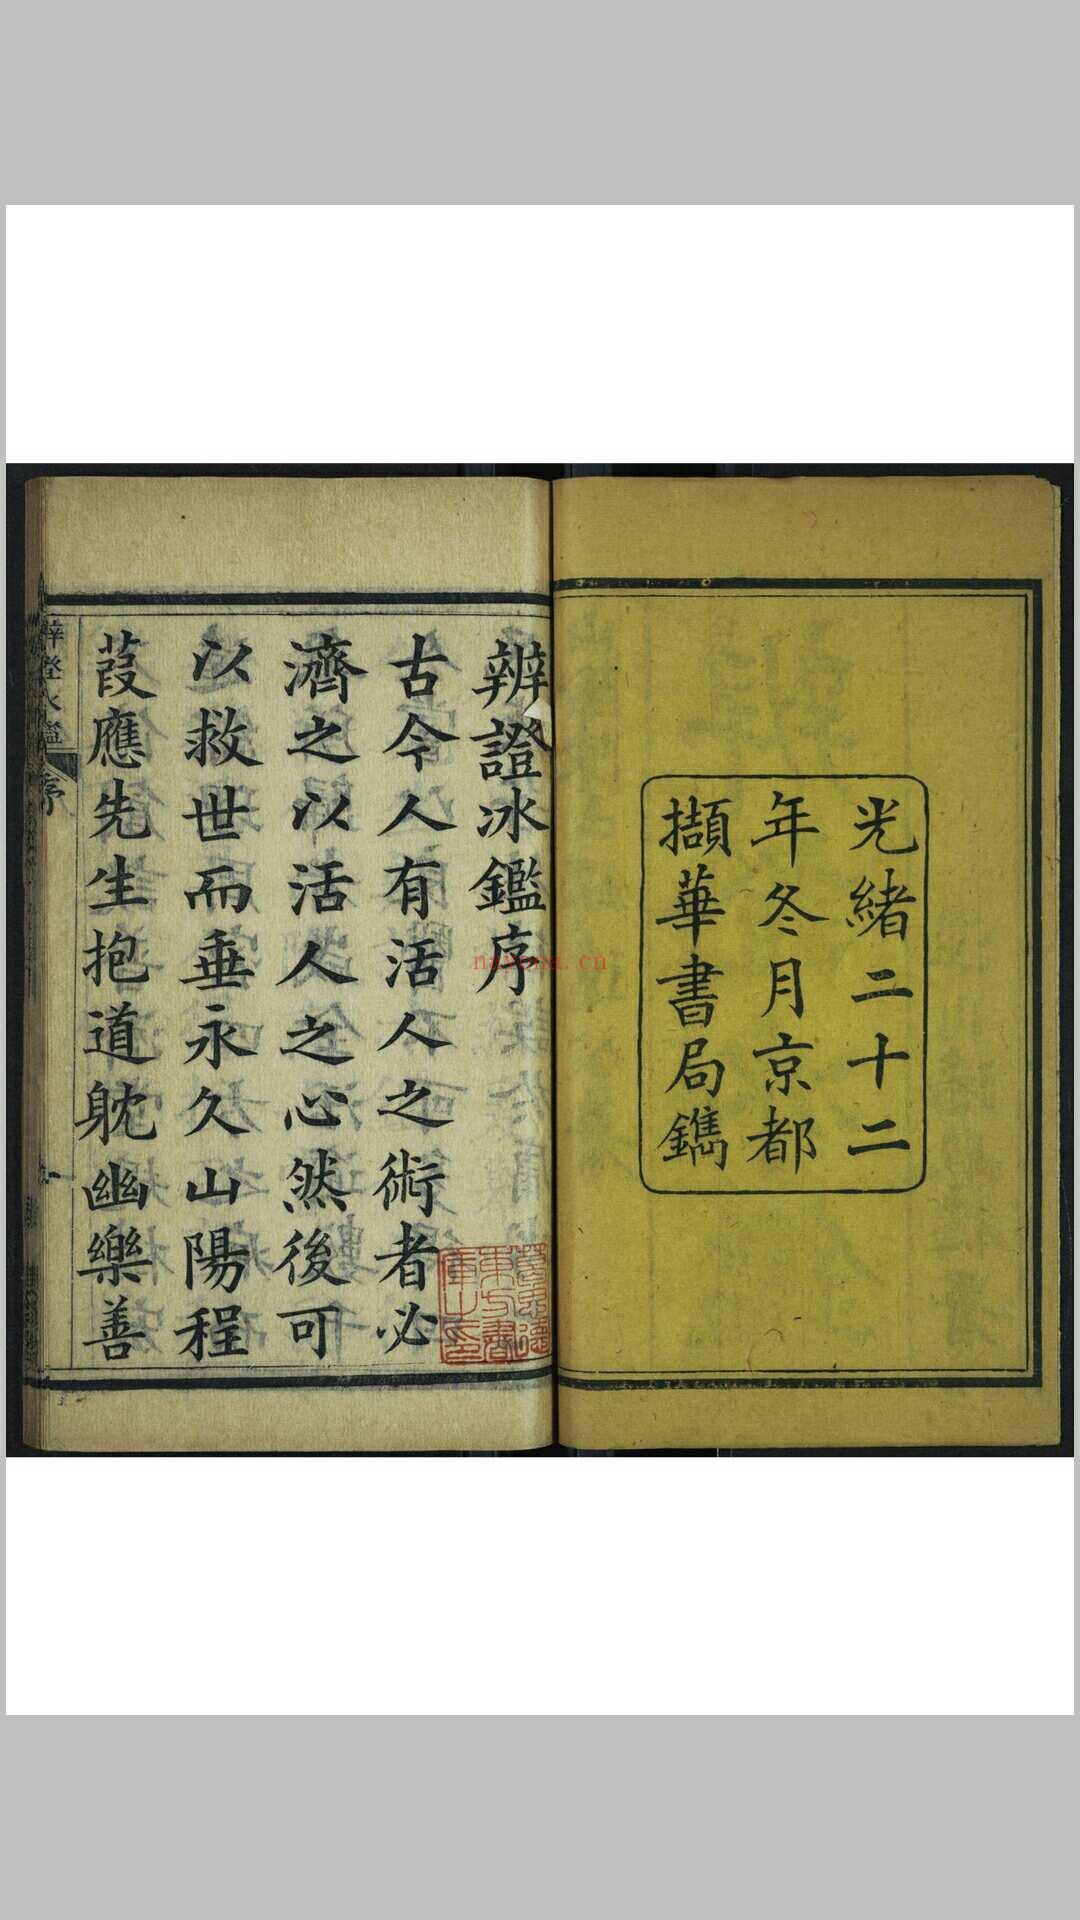 光緒二十二
年冬月京都
擷華書局鐫
辨證冰鑑序
古今人有活人之術者必
濟之以活人之心然後可
以救世而垂永久山陽程
葭應先生抱道躭幽樂善
辨證冰鑑
序
一
nayona.cn